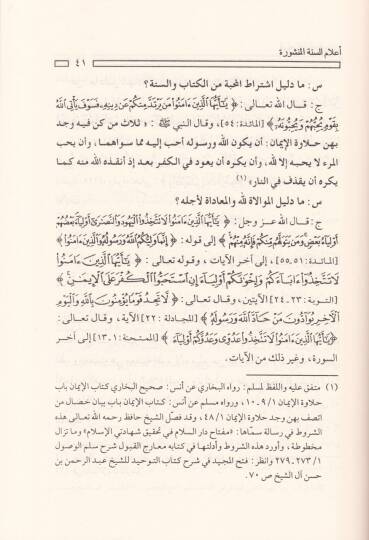 أعلام السنة المنشورة
٤١
س: ما دليل اشتراط المحبة من الكتاب والسنة؟
ج: قال الله تعالى: ﴿ يَٰٓأَيُّهَا ٱلَّذِينَ ءَامَنُوا۟ مَن يَرْتَدَّ مِنكُمْ عَن دِينِهِۦ فَسَوْفَ يَأْتِى ٱللَّهُ
بِقَوْمٍ يُحِبُّهُمْ وَيُحِبُّونَهُۥٓ ﴾ [المائدة: ٥٤]، وقال النبي ﷺ: «ثلاث من كن فيه وجد
بهن حلاوة الإيمان: أن يكون الله ورسوله أحب إليه مما سواهما، وأن يحب
المرء لا يحبه إلا لله، وأن يكره أن يعود في الكفر بعد إذ أنقذه الله منه كما
يكره أن يقذف في النار»(١)
س: ما دليل الموالاة لله والمعاداة لأجله؟
ج: قال الله عز وجل: ﴿ يَٰٓأَيُّهَا ٱلَّذِينَ ءَامَنُوا۟ لَا تَتَّخِذُوا۟ ٱلْيَهُودَ وَٱلنَّصَٰرَىٰٓ أَوْلِيَآءَ بَعْضُهُمْ
أَوْلِيَآءُ بَعْضٍ وَمَن يَتَوَلَّهُم مِّنكُمْ فَإِنَّهُۥ مِنْهُمْ ﴾ إلى قوله: ﴿ إِنَّمَا وَلِيُّكُمُ ٱللَّهُ وَرَسُولُهُۥ وَٱلَّذِينَ ءَامَنُوا۟ ﴾
[المائدة: ٥١،٥٥]، إلى آخر الآيات، وقوله تعالى: ﴿ يَٰٓأَيُّهَا ٱلَّذِينَ ءَامَنُوا۟
لَا تَتَّخِذُوٓا۟ ءَابَآءَكُمْ وَإِخْوَٰنَكُمْ أَوْلِيَآءَ إِنِ ٱسْتَحَبُّوا۟ ٱلْكُفْرَ عَلَى ٱلْإِيمَٰنِ ﴾
[التوبة: ٢٣ـ٢٤] الآيتين، وقال تعالى: ﴿ لَّا تَجِدُ قَوْمًا يُؤْمِنُونَ بِٱللَّهِ وَٱلْيَوْمِ
ٱلْءَاخِرِ يُوَآدُّونَ مَنْ حَآدَّ ٱللَّهَ وَرَسُولَهُۥ ﴾ [المجادلة: ٢٢] الآية، وقال تعالى:
﴿ يَٰٓأَيُّهَا ٱلَّذِينَ ءَامَنُوا۟ لَا تَتَّخِذُوا۟ عَدُوِّى وَعَدُوَّكُمْ أَوْلِيَآءَ ﴾ [الممتحنة: ١ـ١٣] إلى آخر
السورة، وغير ذلك من الآيات.
(١) متفق عليه واللفظ لمسلم: رواه البخاري عن أنس: صحيح البخاري كتاب الإيمان باب
حلاوة الإيمان ١/٩ـ١٠، ورواه مسلم عن أنس: كتاب الإيمان باب بيان خصال من
اتصف بهن وجد حلاوة الإيمان ١/٤٨، وقد فصّل الشيخ حافظ رحمه الله تعالى هذه
الشروط في رسالة سمّاها: «مفتاح دار السلام في تحقيق شهادتي الإسلام» وما تزال
مخطوطة، وأورد هذه الشروط وأدلتها في كتابه معارج القبول شرح سلم الوصول
١/٢٧٣ـ٢٧٩ وانظر: فتح المجيد في شرح كتاب التوحيد للشيخ عبد الرحمن بن
حسن آل الشيخ ص ٧٠.